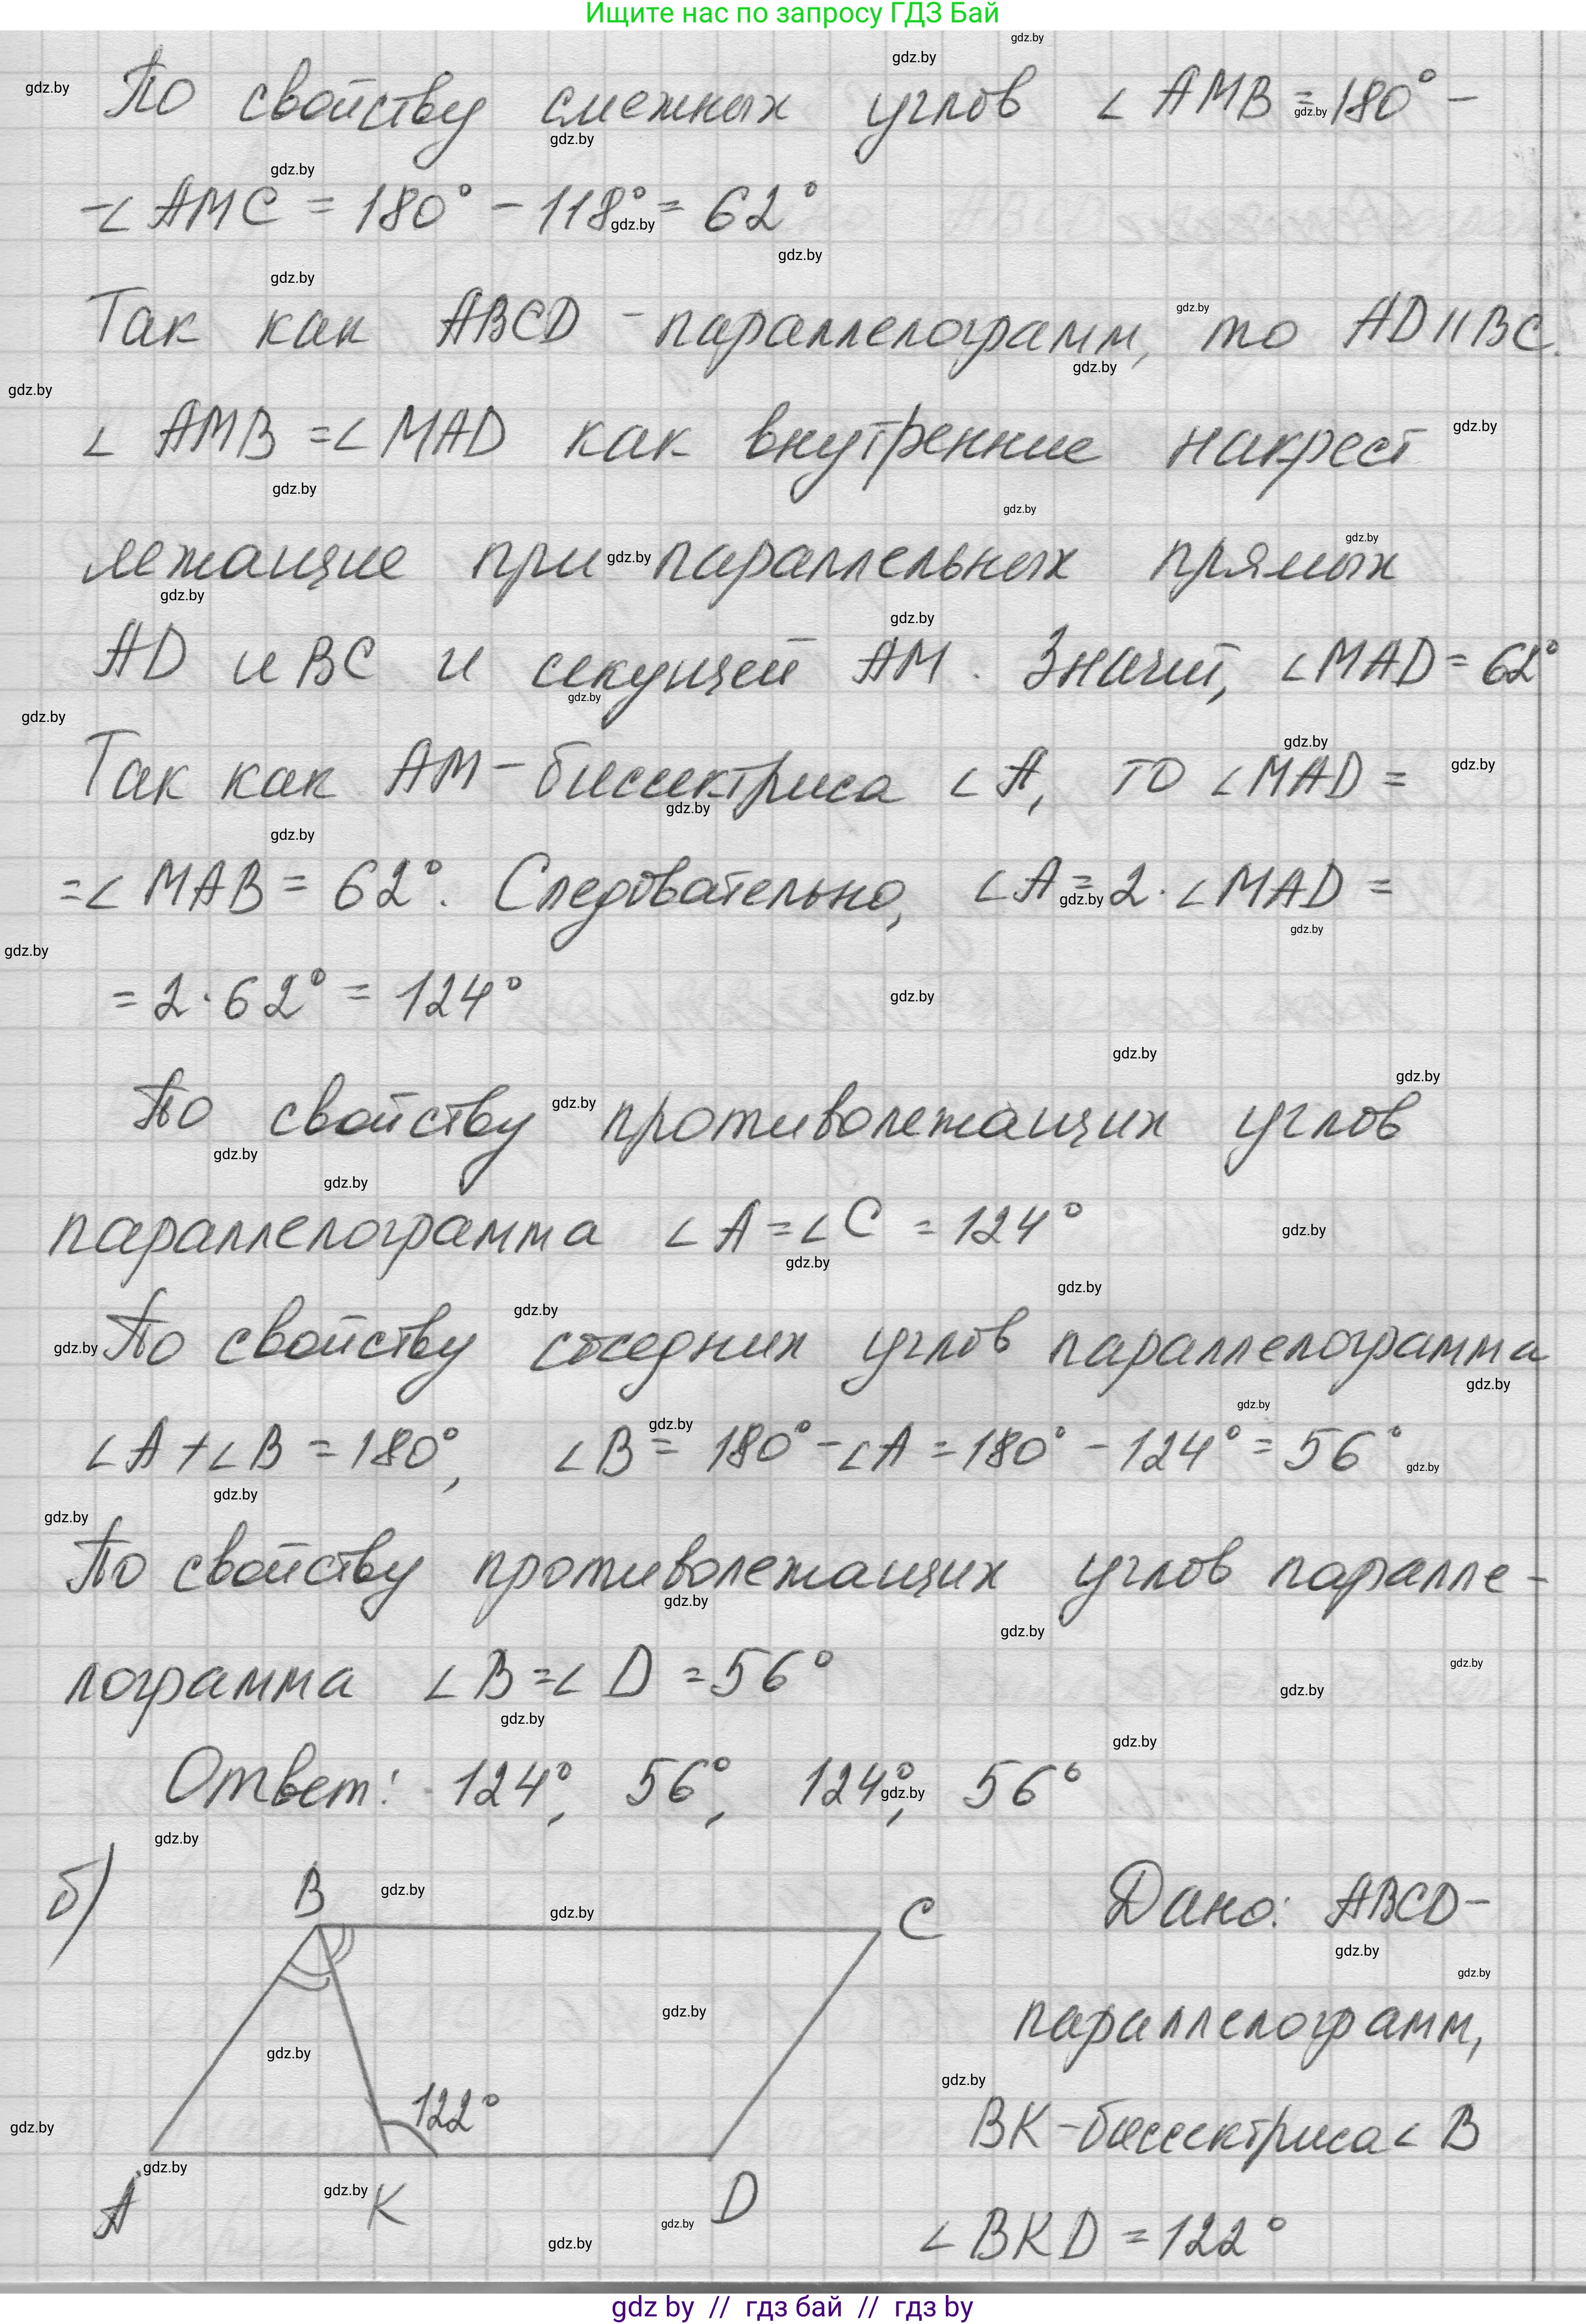 Ищите нас по запросу ГДЗ Бай
По свойству смежных углов ∠AMB = 180° –
–∠AMC = 180° – 118° = 62°
Так как ABCD – параллелограмм, то AD II BC.
∠ AMB = ∠MAD как внутренние накрест
лежащие при параллельных прямых
AD и BC и секущей AM. Значит, ∠MAD = 62°
Так как AM – биссектриса ∠A, то ∠MAD =
= ∠MAB = 62°. Следовательно, ∠A = 2 · ∠MAD =
= 2 · 62° = 124°
По свойству противолежащих углов
параллелограмма ∠A = ∠C = 124°
По свойству соседних углов параллелограмма
∠A + ∠B = 180°, ∠B = 180° – ∠A = 180° – 124° = 56°
По свойству противолежащих углов паралле-
лограмма ∠B = ∠D = 56°
Ответ: 124°, 56°, 124°, 56°
б) B C Дано: ABCD –
параллелограмм,
122° BK – биссектриса ∠ B
A K D
∠BKD = 122°
gdz by // гдз бай // гдз by